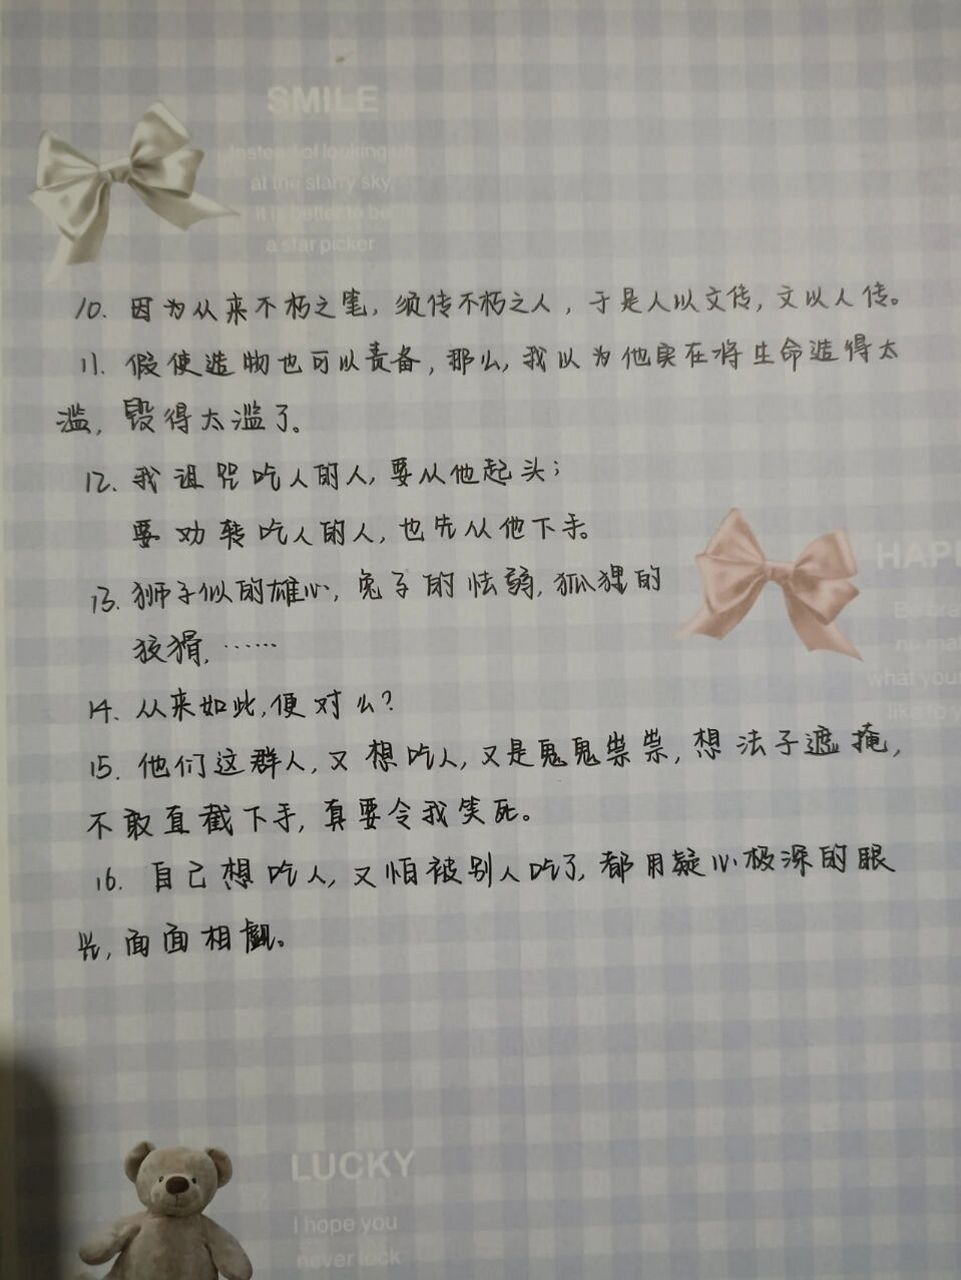 SMILE
Instead of looking up
at the starry sky,
it is better to be
a star picker
10. 因为从来不朽之笔,须传不朽之人,于是人以文传,文以人传。
11. 假使造物也可以责备,那么,我以为他实在将生命造得太
滥,毁得太滥了。
12. 我诅咒吃人的人,要从他起头;
要劝转吃人的人,也先从他下手。
HAPP
13. 狮子似的雄心,兔子的怯弱,狐狸的
狡猾,……
what your
14. 从来如此,便对么?
15. 他们这群人,又想吃人,又是鬼鬼祟祟,想法子遮掩,
不敢直截下手,真要令我笑死。
16. 自己想吃人,又怕被别人吃了,都用疑心极深的眼
光,面面相觑。
LUCKY
I hope you
never lack